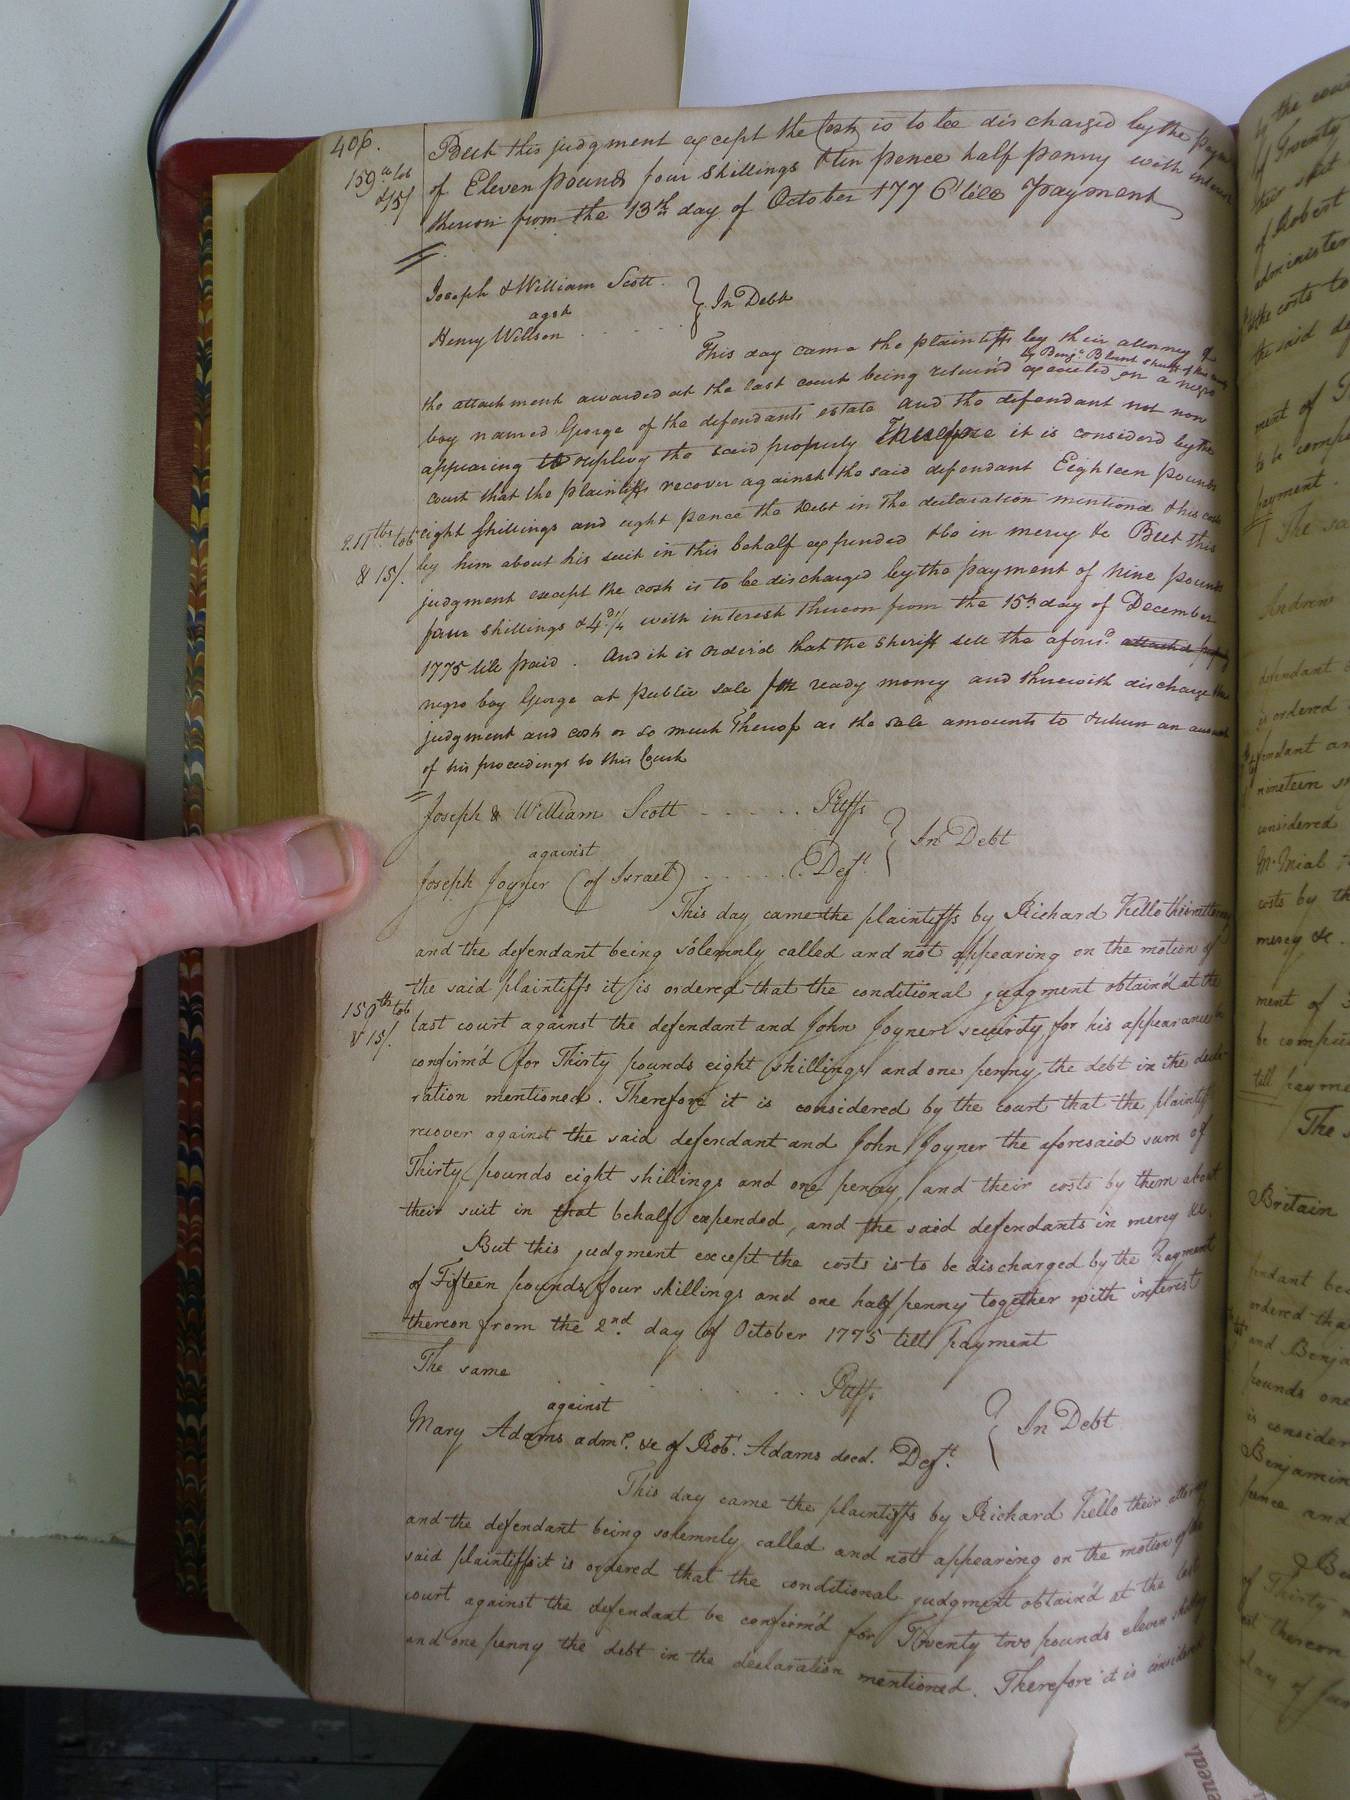 406.
But this judgment except the Costs is to be discharged by the
159 tob
& 15/
of Eleven pounds four shillings & ten pence half penny with
thereon from the 13th day of October 1776 till payment
Joseph & William Scott.
agst
In Debt
Henry Willson
This day came the plaintiffs by their attorney &
by Benja. Blunt
the attachment awarded at the last court being return'd executed on a negro
boy named George of the defendants estate and the defendant not now
appearing to replevy the said property Therefore it is considerd by the
court that the plaintiffs recover against the said defendant Eighteen pounds
211 tbs tob
& 15/.
eight shillings and eight pence the Debt in the declaration mentiond & his costs
by him about his suit in this behalf expended &be in mercy &c But this
judgment except the costs is to be discharged by the payment of nine pounds
four shillings & 4d 1/4 with interest thereon from the 15th day of December
1775 till paid. And it is orderd that the sheriff sell the aforesd. attach'd
negro boy George at public sale for ready money and therewith discharge this
judgment and costs or so much Thereof as the sale amounts to & return an
of his proceedings to this Court
Joseph & William Scott Pltffs
against
In Debt
Joseph Joyner (of Israel) Deft.
This day came the plaintiffs by Richard Kello their
and the defendant being solemnly called and not appearing on the motion of
the said plaintiffs it is ordered that the conditional judgment obtain'd at the
150 tb tob
& 15/.
last court against the defendant and John Joyner security for his appearance be
confirm'd for Thirty pounds eight shillings and one penny the debt in the decla-
ration mentioned. Therefore it is considered by the court that the plaintiffs
recover against the said defendant and John Joyner the aforesaid sum of
Thirty pounds eight shillings and one penny, and their costs by them about
their suit in that behalf expended, and the said defendants in mercy &c.
But this judgment except the costs is to be discharged by the Payment
of Fifteen pounds four shillings and one half penny together with interest
thereon from the 2nd. day of October 1775 till payment
The same Pltffs
against
In Debt
Mary Adams admx. &c of Robt. Adams decd. Deft.
This day came the plaintiffs by Richard Kello their
and the defendant being solemnly called and not appearing on the motion of the
said plaintiffs it is ordered that the conditional judgment obtain'd at the last
court against the defendant be confirm'd for Twenty two pounds eleven
and one penny the debt in the declaration mentioned. Therefore it is considered